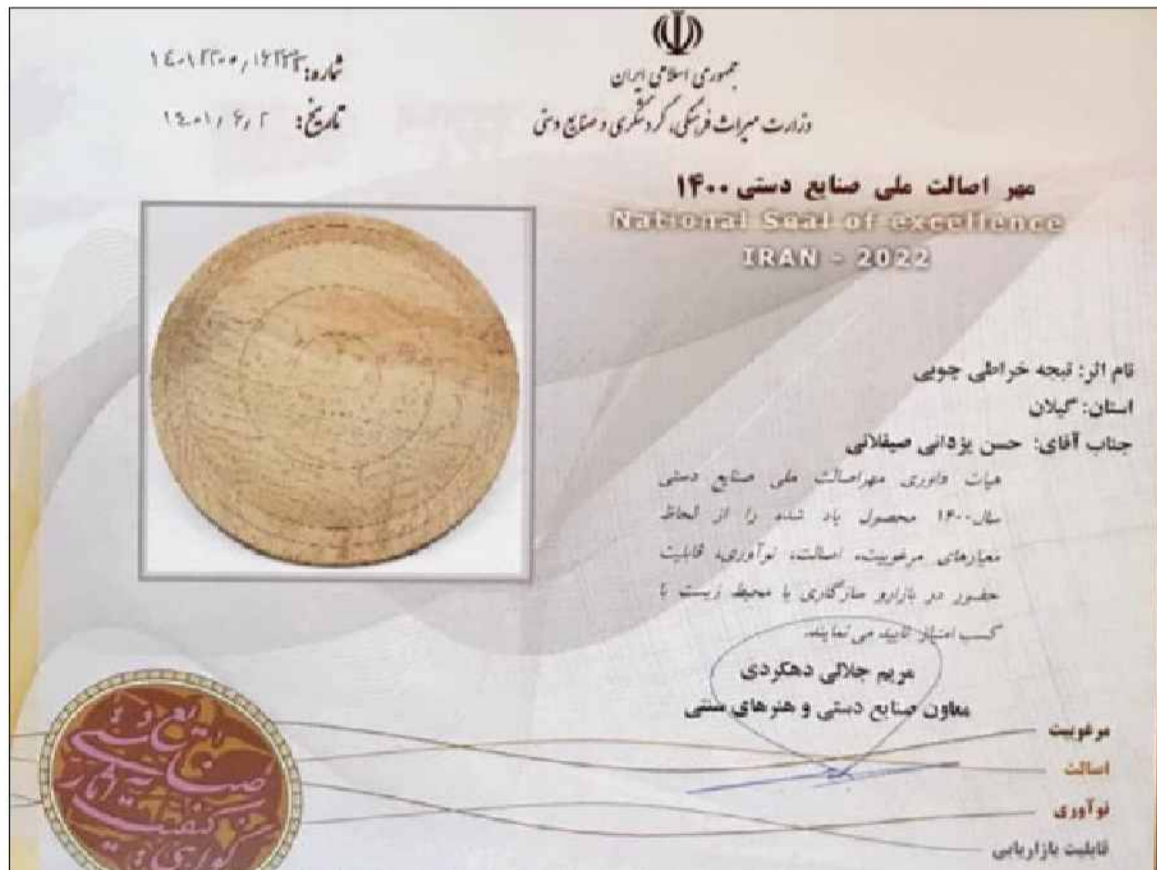 جمهوری اسلامی ایران
وزارت میراث فرهنگی، گردشگری و صنایع دستی
شماره:
تاریخ: ۱۴۰۱/۶/۲
مهر اصالت ملی صنایع دستی ۱۴۰۰
National Seal of excellence
IRAN - 2022
نام اثر: تبجه خراطی چوبی
استان: گیلان
جناب آقای: حسن یزدانی صیقلانی
هیات داوری مهراصالت ملی صنایع دستی
سال ۱۴۰۰ محصول یاد شده را از لحاظ
معیارهای مرغوبیت، اصالت، نوآوری، قابلیت
حضور در بازارو سازگاری با محیط زیست با
کسب امتیاز تایید می نمایند.
مریم جلالی دهکردی
معاون صنایع دستی و هنرهای سنتی
مرغوبیت
اصالت
نوآوری
قابلیت بازاریابی